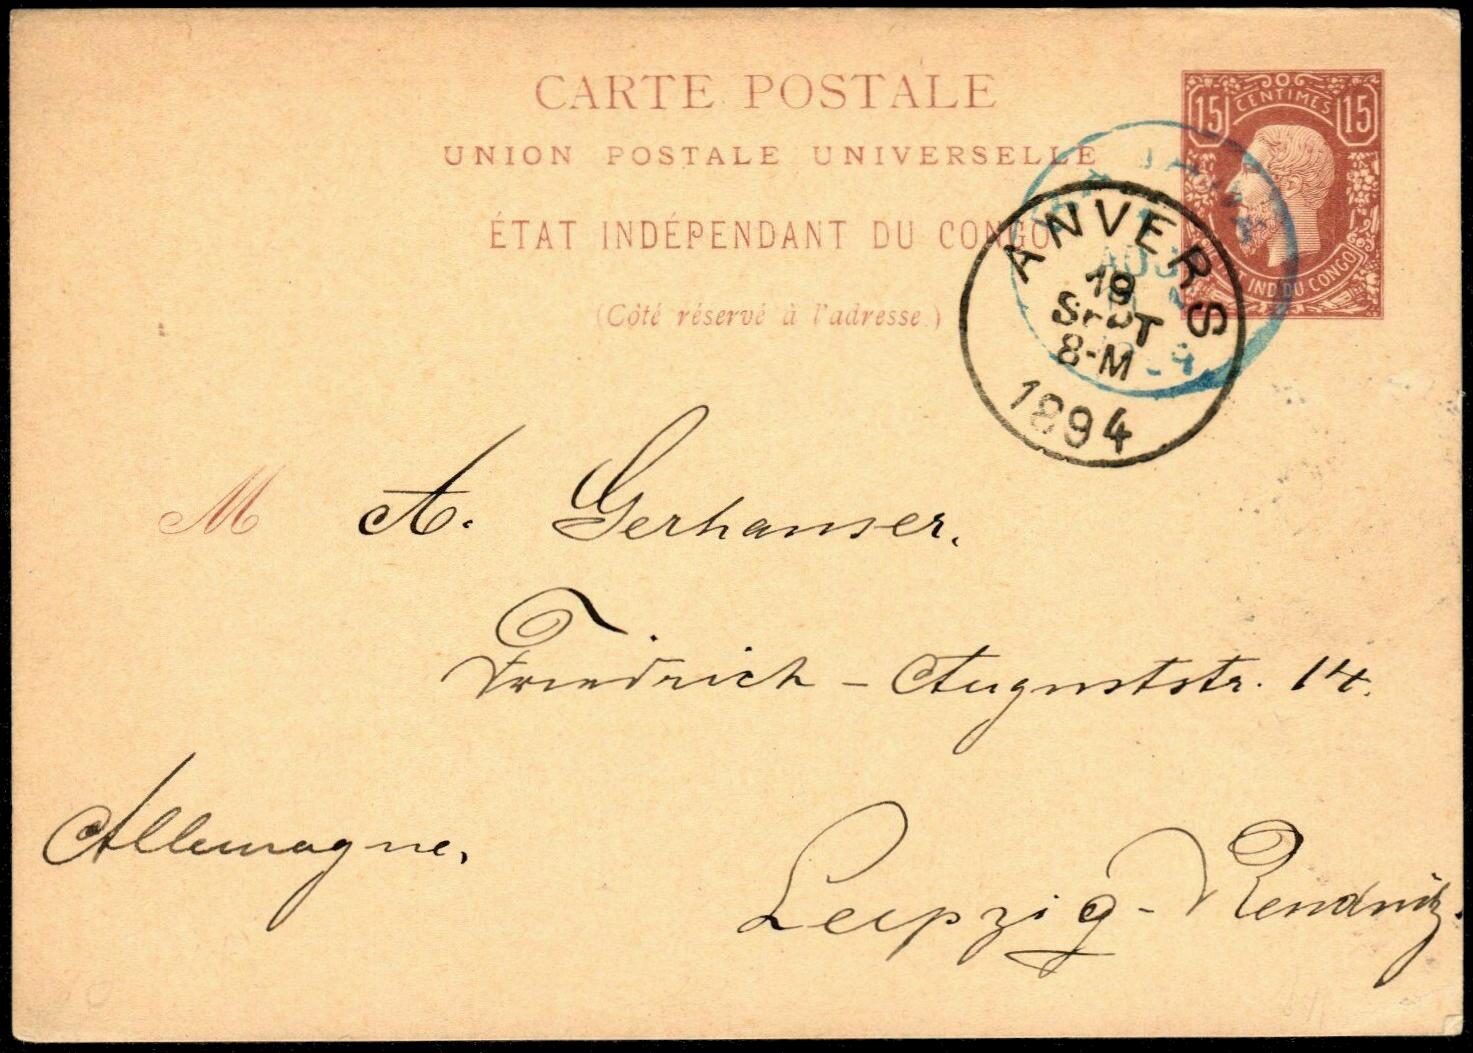 CARTE POSTALE
UNION POSTALE UNIVERSELLE
ÉTAT INDÉPENDANT DU CONGO
(Côté réservé à l'adresse.)
15 CENTIMES 15
IND DU CONGO
ANVERS
19
SEPT
8-M
1894
M A. Gerhanser.
Friedrich-Auguststr. 14.
Allemagne.
Leipzig-Rendnitz.